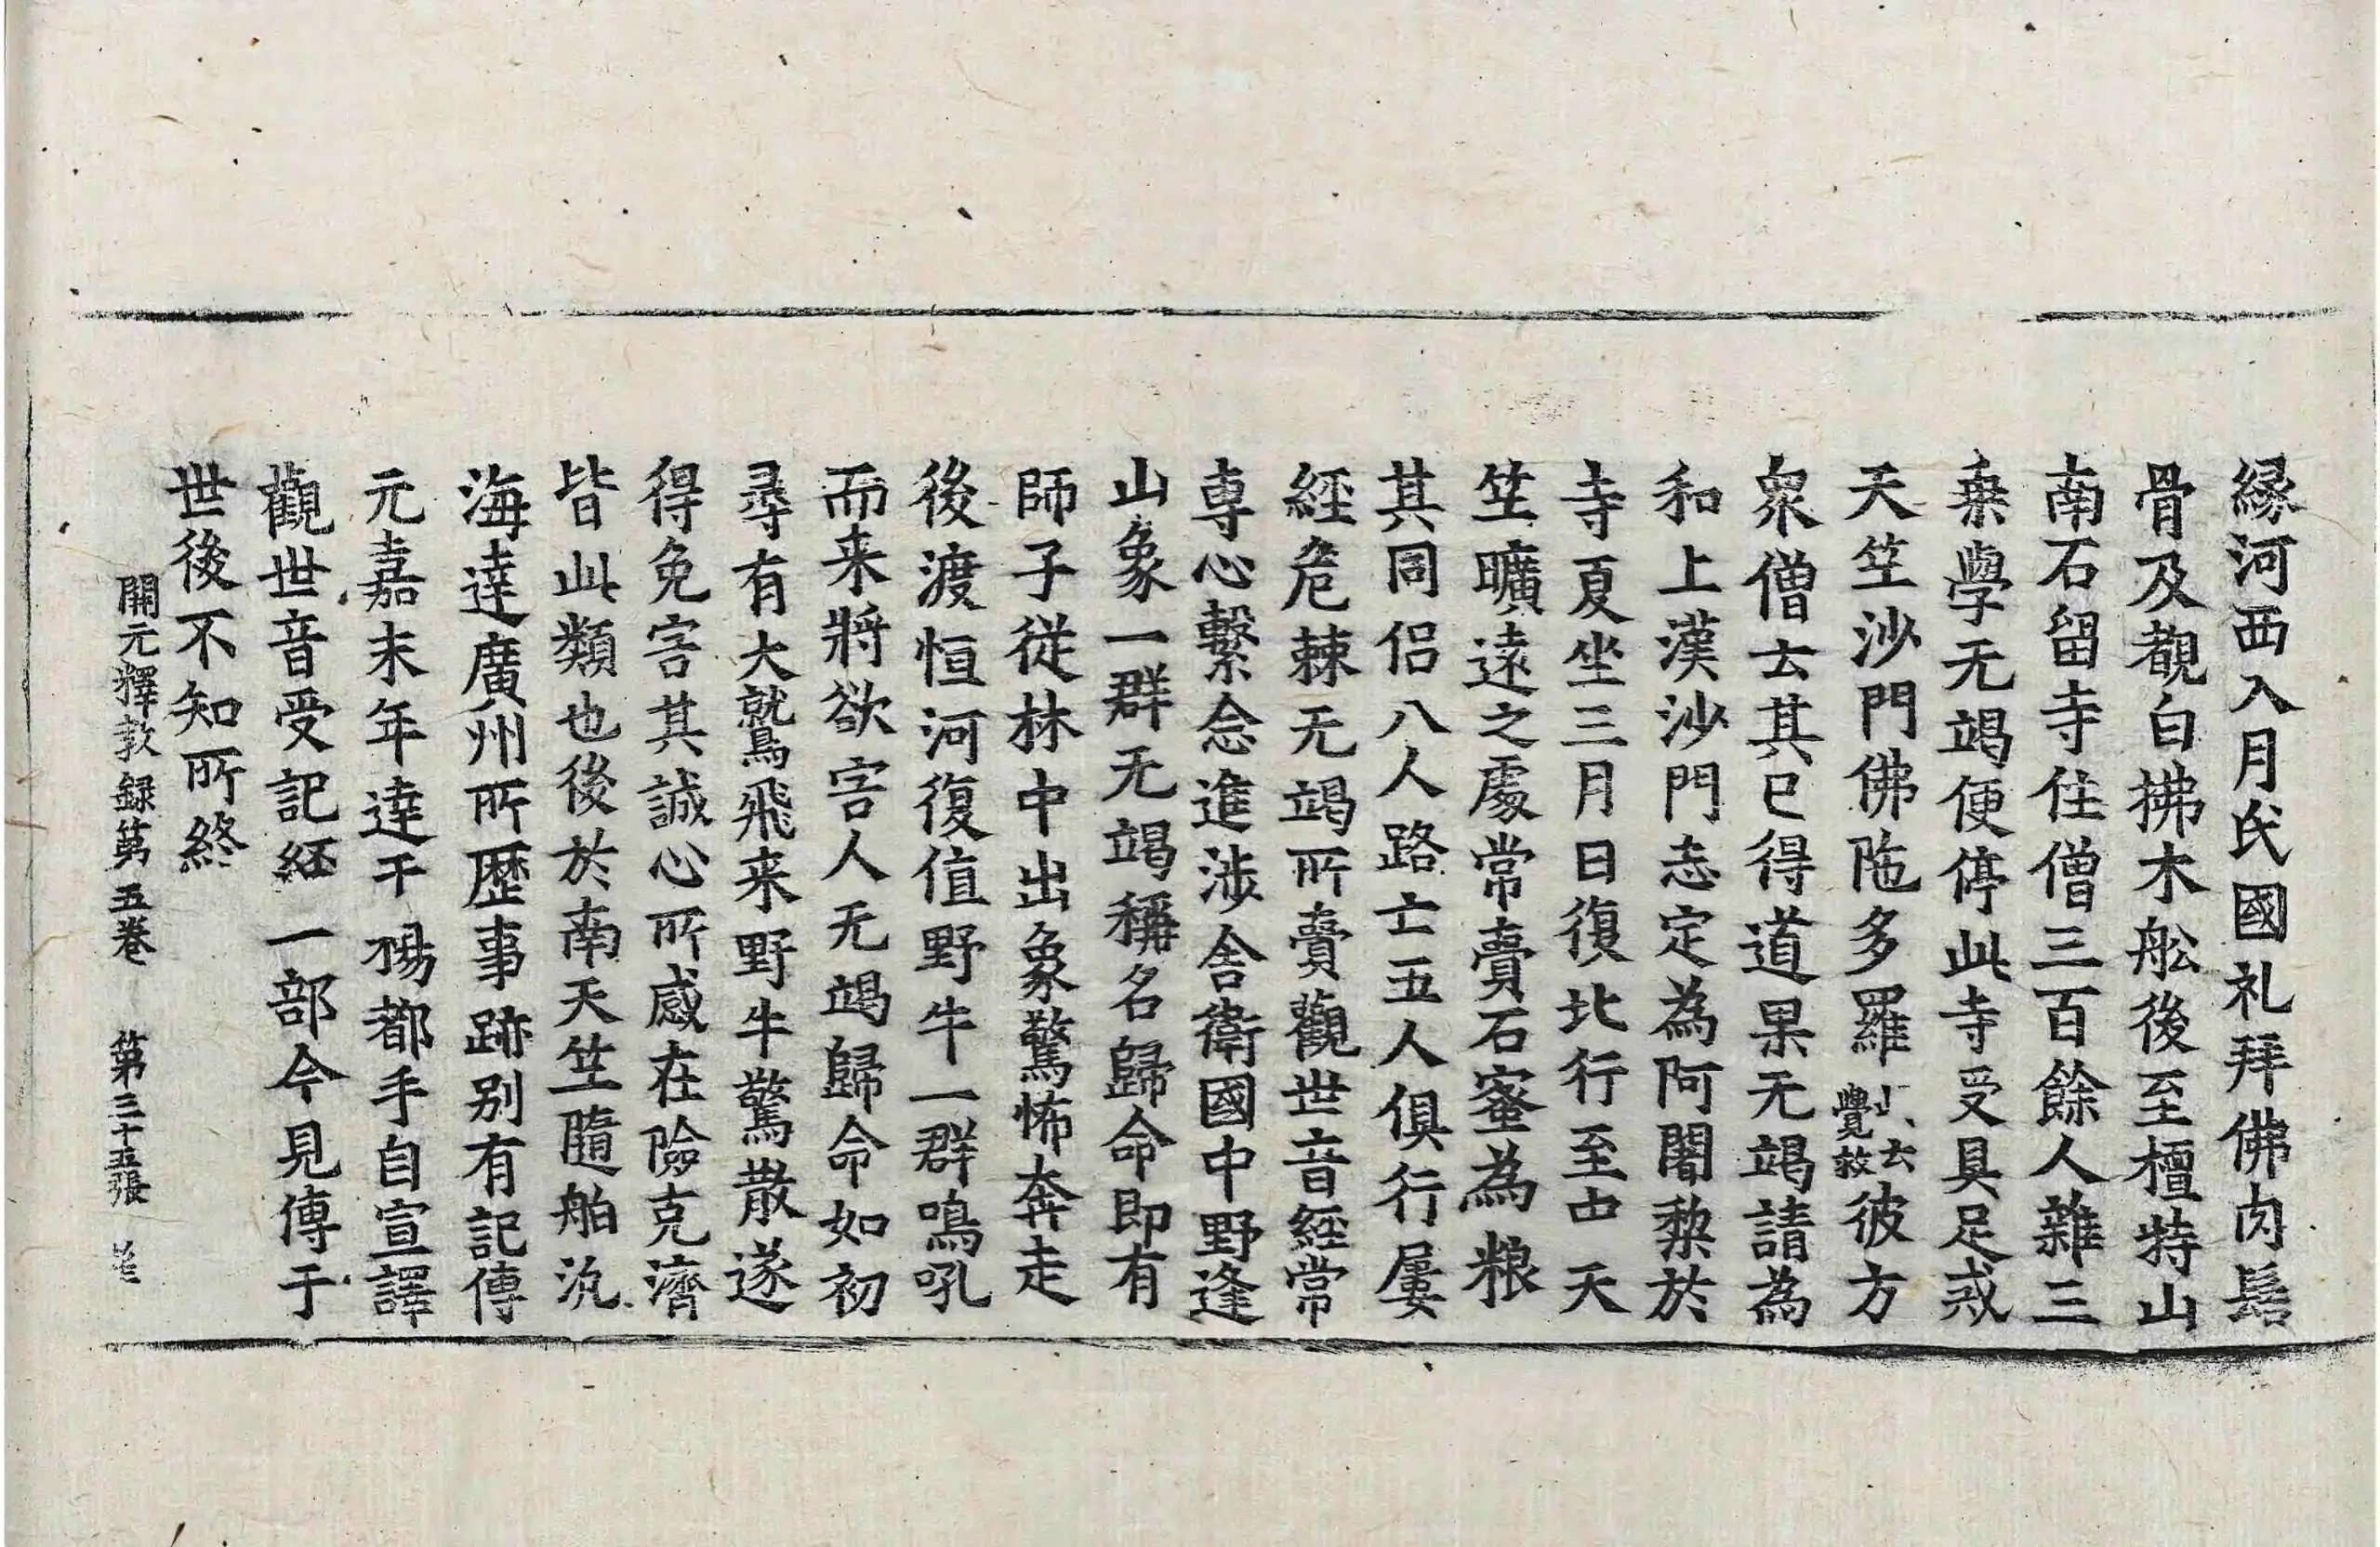 緣河西入月氏國礼拜佛肉髻
骨及覩白拂木舩後至檀特山
南石留寺住僧三百餘人雜三
乗學无竭便停此寺受具足戒
天竺沙門佛陁多羅此云覺救彼方
衆僧云其已得道果无竭請為
和上漢沙門志定為阿闍黎於
寺夏坐三月日復北行至中天
竺曠遠之處常賷石蜜為粮
其同侣八人路亡五人俱行屢
經危棘无竭所賷觀世音經常
専心繫念進涉舍衛國中野逢
山象一群无竭稱名歸命即有
師子従林中出象驚怖奔走
後渡恒河復值野牛一群鳴吼
而来將欲害人无竭歸命如初
尋有大鷲飛来野牛驚散遂
得免害其誠心所感在險克濟
皆此類也後於南天竺隨舶汎
海達廣州所歷事跡别有記傳
元嘉末年達于楊都手自宣譯
觀世音受記経一部今見傳于
世後不知所終
開元釋教録第五卷 第三十五張